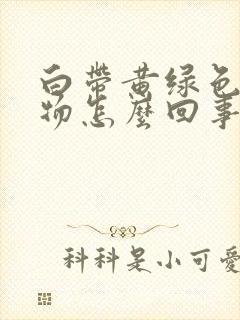 白帶黄绿色
物怎麼回事
科科是小可愛